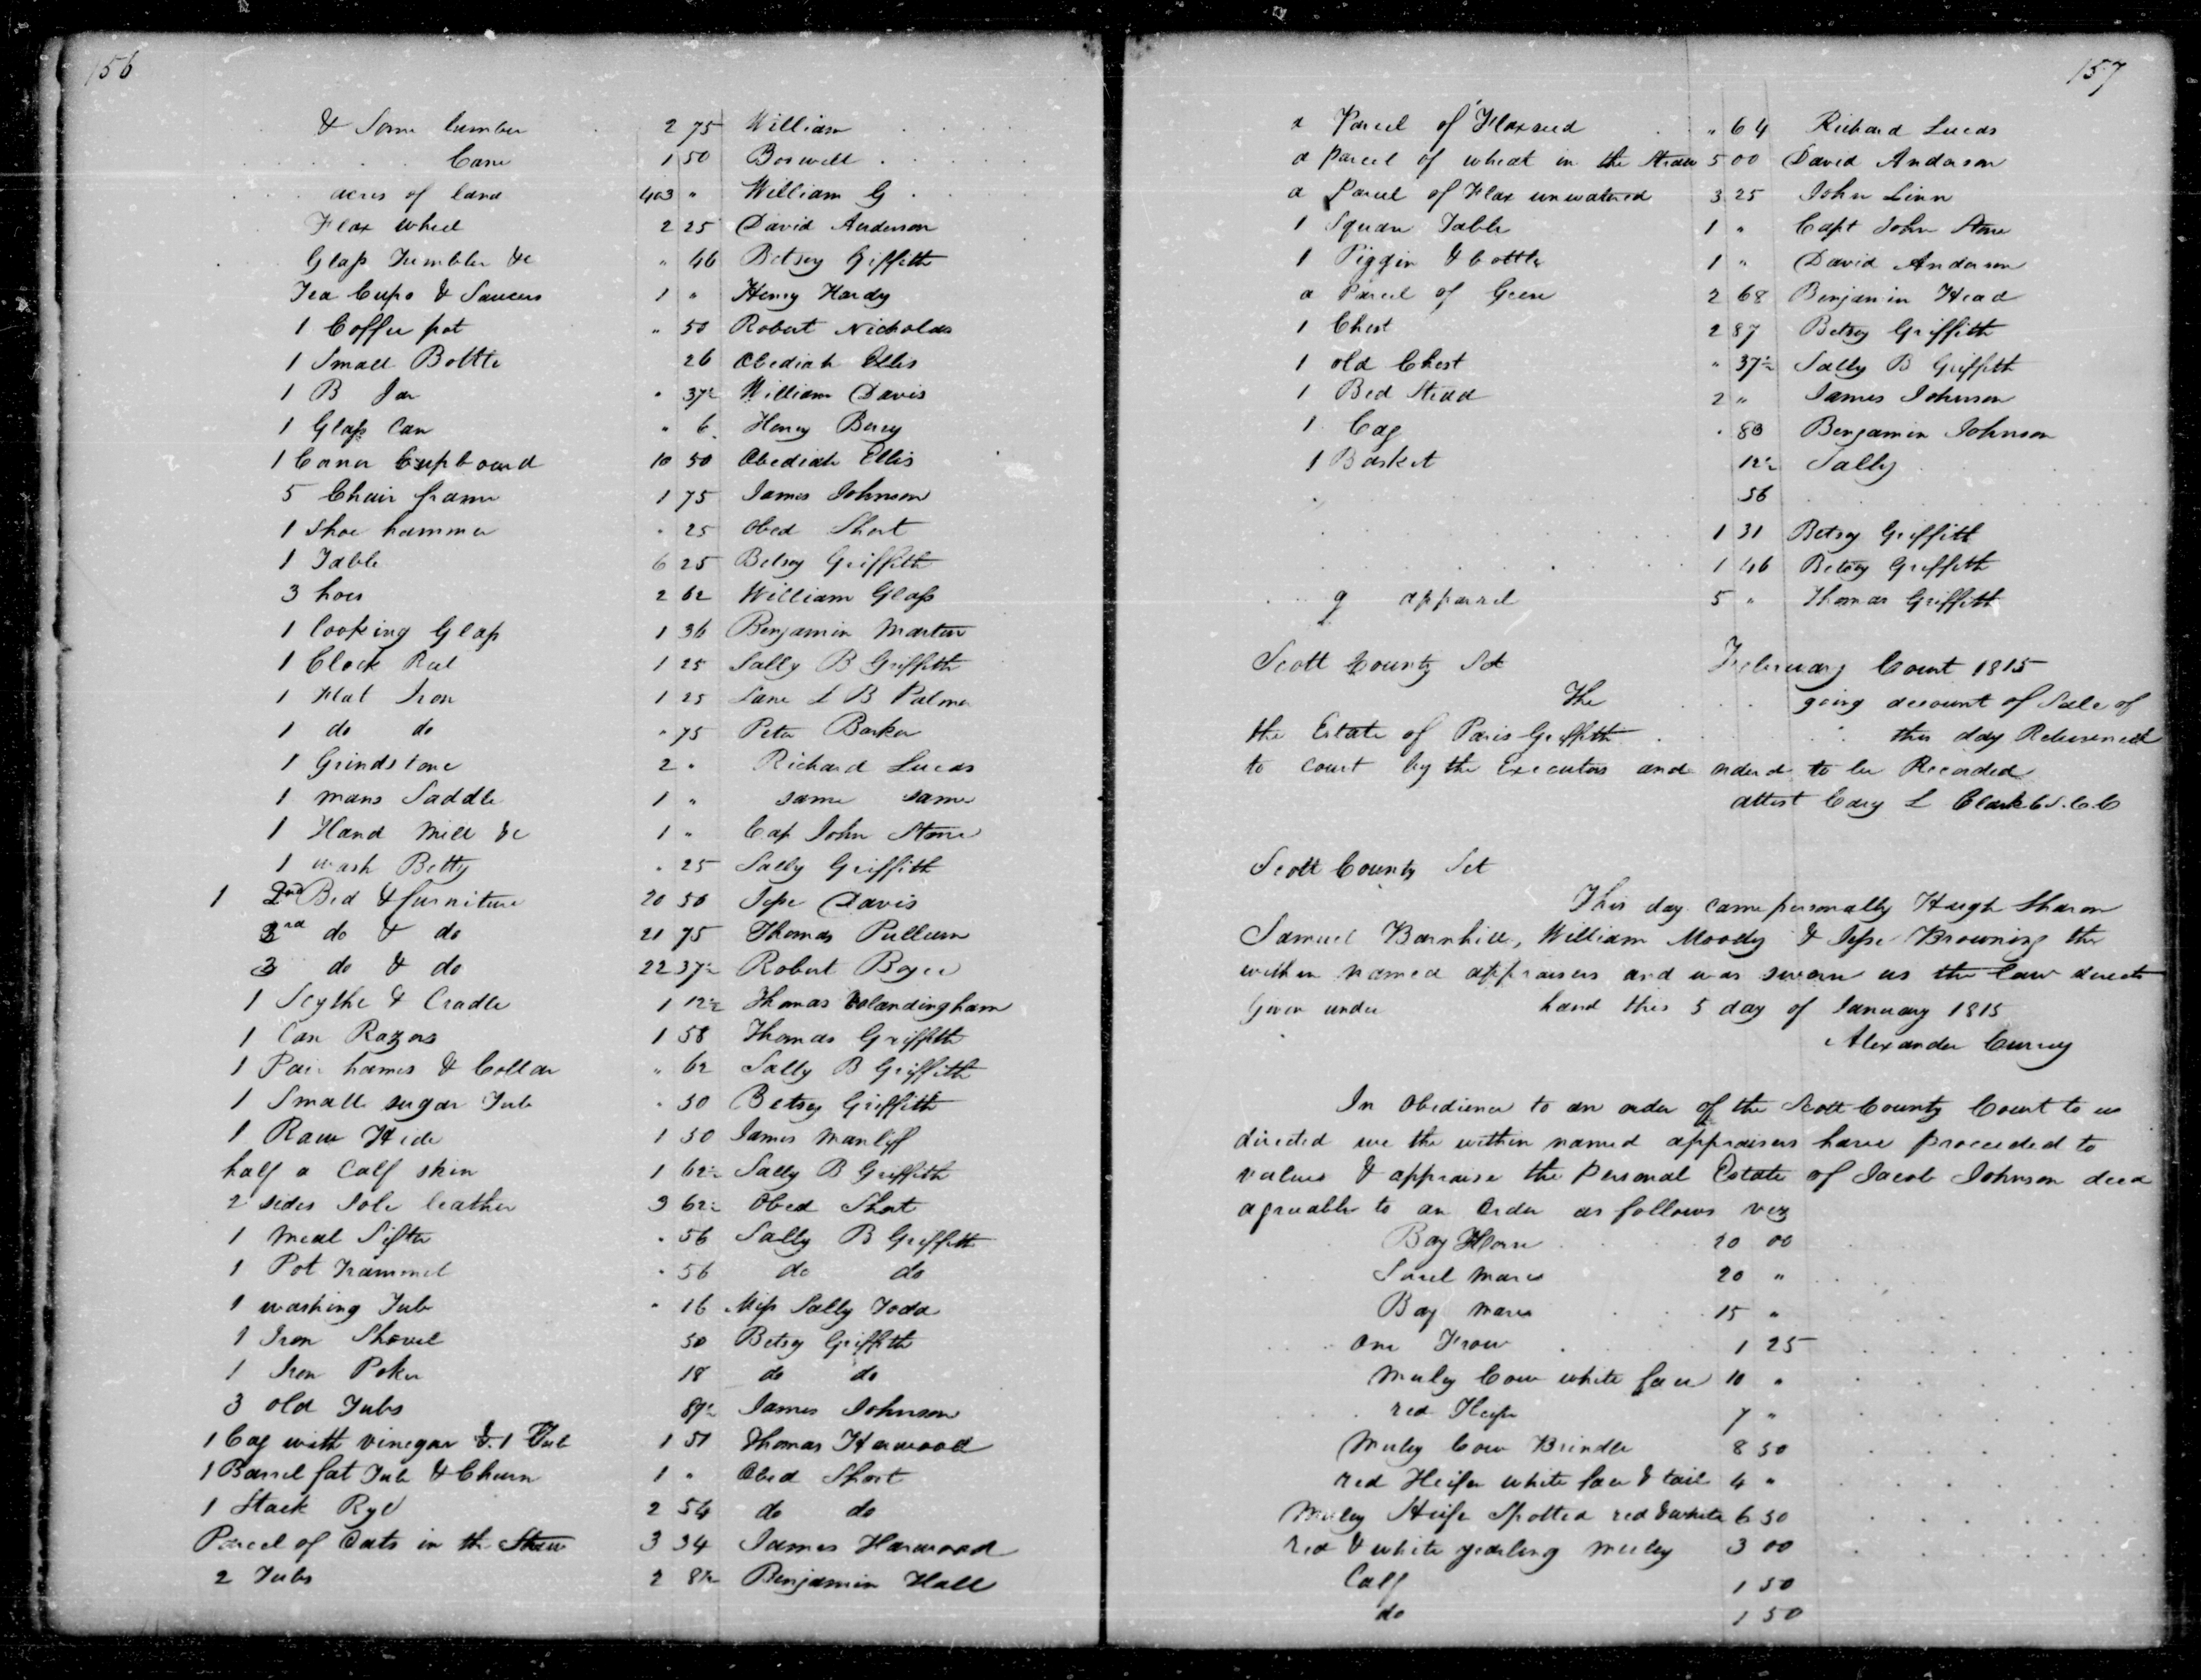 156
& Some lumber 2 75 William
Cane 1 50 Boswell
acres of land 403 " William G
Flax wheel 2 25 David Anderson
Glass Tumbler &c " 46 Betsey Griffith
Tea Cups & Saucers 1 " Henry Hardy
1 Coffee pot " 50 Robert Nicholas
1 Small Bottle 26 Obediah Ellis
1 B Jar " 37½ William Davis
1 Glass Can " 6 Henry Berry
1 Corner Cupboard 10 50 Obediah Ellis
5 Chair frame 1 75 James Johnson
1 Shoe hammer " 25 Obed Short
1 Table 6 25 Betsy Griffith
3 hoes 2 62 William Glass
1 Looking Glass 1 36 Benjamin Martin
1 Clock Reel 1 25 Sally B Griffith
1 Flat Iron 1 25 Lane L B Palmer
1 do do " 75 Peter Barker
1 Grindstone 2 " Richard Lucas
1 mans Saddle 1 " same same
1 Hand Mill &c 1 " Cap John Stone
1 wash Betty " 25 Sally Griffith
1 2nd Bed & furniture 20 50 Jesse Davis
3rd do & do 21 75 Thomas Pullum
3 do & do 22 37½ Robert
1 Scythe & Cradle 1 12½ Thomas Volandingham
1 Can Razors 1 58 Thomas Griffith
1 Pair hames & Collar " 62 Sally B Griffith
1 Small sugar Tub " 50 Betsey Griffith
1 Raw Hide 1 50 James Manliff
half a Calf skin 1 62½ Sally B Griffith
2 sides Sole leather 3 62½ Obed Short
1 Meal Sifter " 56 Sally B Griffith
1 Pot Trammel " 56 do do
1 washing Tub " 16 Miss Sally Todd
1 Iron Shovel 50 Betsy Griffith
1 Iron Poker 18 do do
3 old Tubs 87½ James Johnson
1 Cag with vinegar & 1 Tub 1 51 Thomas Harwood
1 Barrel fat Tub & Churn 1 " Obed Short
1 Stack Rye 2 54 do do
Parcel of Oats in the Straw 3 34 James Harwood
2 Tubs 2 Benjamin Hall
157
a Parcel of Flaxseed " 64 Richard Lucas
a parcel of wheat in the Straw 5 00 David Anderson
a Parcel of Flax unwatered 3 25 John Linn
1 Square Table 1 " Capt John Stone
1 Piggin & bottle 1 " David Anderson
a Parcel of Geese 2 68 Benjamin Head
1 Chest 2 87 Betsy Griffith
1 old Chest " 37½ Sally B Griffith
1 Bed Stead 2 " James Johnson
1 Cag " 83 Benjamin Johnson
1 Basket 12½ Sally
56
1 31 Betsy Griffith
1 46 Betsy Griffith
g apparel 5 " Thomas Griffith
Scott County Sct February Court 1815
The going account of Sale of
the Estate of Paris Griffith this day Returned
to court by the Executors and orderd to be Recorded
attest Cary L Clark C.S.C.C
Scott County Sct
This day came personally Hugh Sharon
Samuel Barnhill, William Moody & Jesse Browning the
within named appraisers and was sworn as the law directs
Given under hand this 5 day of January 1815
Alexander Curry
In Obedience to an order of the Scott County Court to us
directed we the within named appraisers have proceeded to
values & appraise the Personal Estate of Jacob Johnson decd
agreable to an Order as follows viz
Bay Horse 20 00
Sorel Mare 20 "
Bay Mare 15 "
One Frow 1 25
Muley Cow white face 10 "
red Heifer 7 "
Muley Cow Brindle 8 50
red Heifer white face & tail 4 "
Muley Heifer Spotted red & white 6 50
red & white yearling Muley 3 00
Calf 1 50
do 1 50